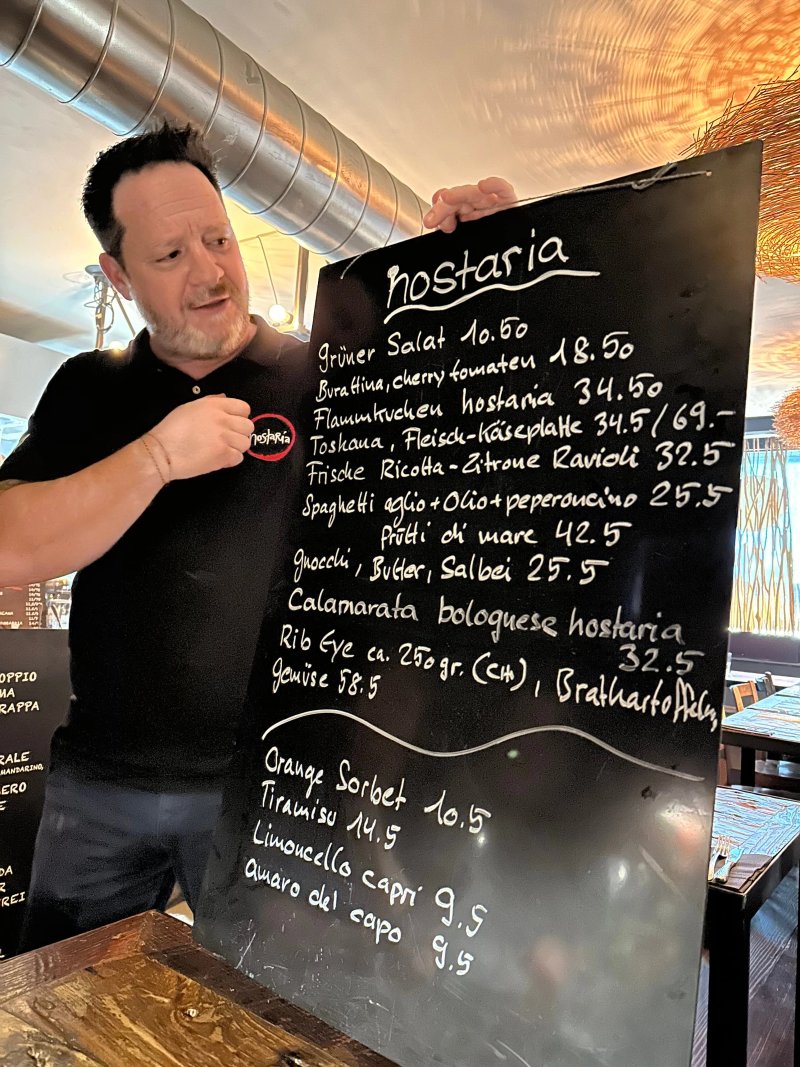 hostaria
grüner Salat 10.50
Burattina, cherry tomaten 18.50
Flammkuchen hostaria 34.50
Toskana, Fleisch-Käseplatte 34.5/69.-
Frische Ricotta-Zitrone Ravioli 32.5
Spaghetti aglio+Olio+peperoncino 25.5
frütti di mare 42.5
gnocchi, Butter, Salbei 25.5
Calamarata bolognese hostaria
32.5
Rib Eye ca. 250gr. (CH), Brathartoffeln,
gemüse 58.5
Orange Sorbet 10.5
Tiramisu 14.5
Limoncello capri 9.5
amaro del capo 9.5
hostaria
OPPIO
MA
RAPPA
RALE
MANDARINO,
ERO
E
DA
R
REI